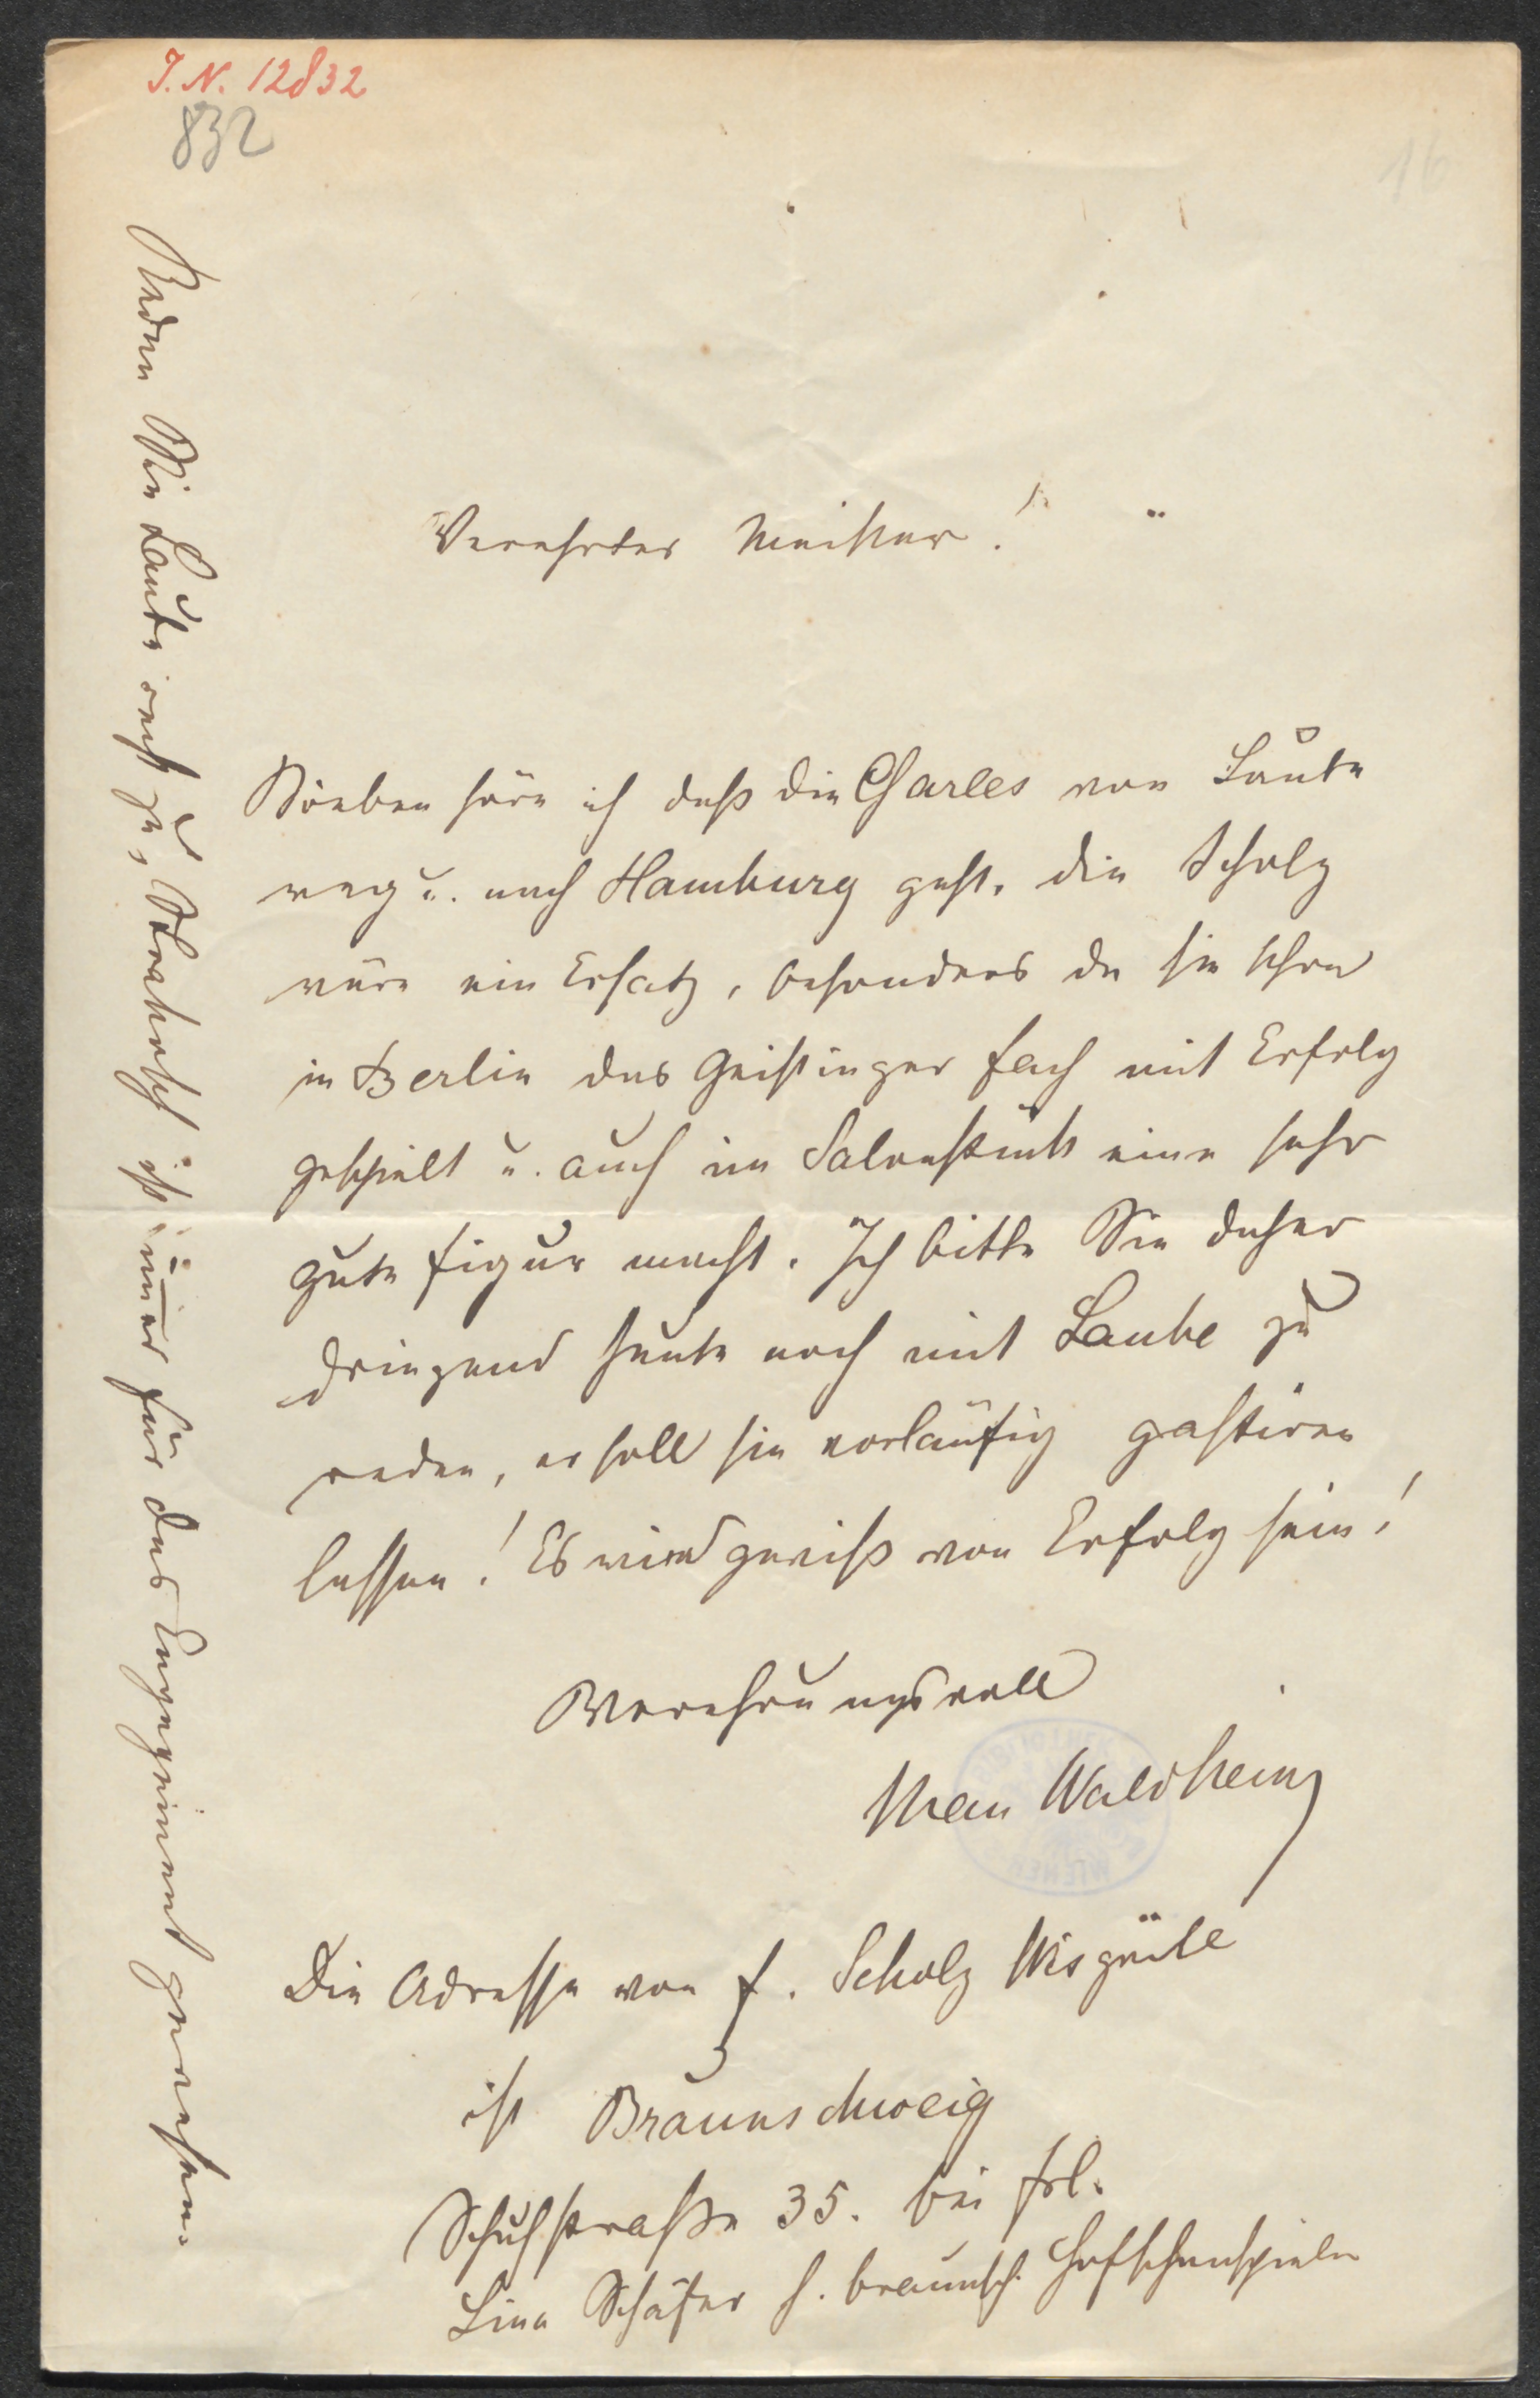 J. N. 12832
832
16
Verehrter Meister!
Soeben höre ich daß die Charles von Laube
weg u. nach Hamburg geht. Die Scholz
wäre ein Ersatz, besonders da sie schon
in Berlin das Geistinger Fach mit Erfolg
gespielt u. auch im Salonstück eine sehr
gute Figur macht. Ich bitte Sie daher
dringend heute noch mit Laube zu
reden, er soll sie vorläufig gastiren
lassen! Es wird gewiß von Erfolg sein!
Verehrungsvoll
Max Waldheim
Die Adresse von F. Scholz
ist Braunschweig
Schuhstraße 35. bei Frl.
Lina Schäfer h. braunsch. Hofschauspieln
Reden Sie Laube recht zu, Strakosch ist immer für das Engagement gewesen.